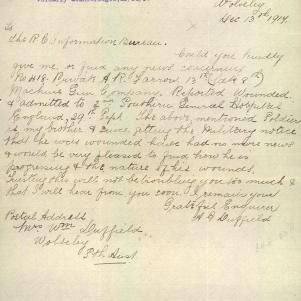 Wolseley
Dec 13th 1917.
To
The R C Information Bureau.
Could you kindly
give me, or find any news concerning
Private A R Farrow. 13th
Machine Gun Company. Reported Wounded.
& admitted to 2nd Southern General Hospital
England, 29th Sept. The above mentioned Soldier
is my brother & since getting the Military notice
that he was wounded have had no more news
& would be very pleased to find how he is
progressing & the nature of his wounds.
Trusting this will not be troubling you too much &
that I will hear from you soon. I remain yours
Grateful Enquirer
A F Duffield
Postal Address.
Mrs Wm Duffield.
Wolseley
Sth Aust